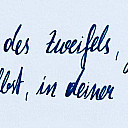 des Zweifels,
lbst, in deiner